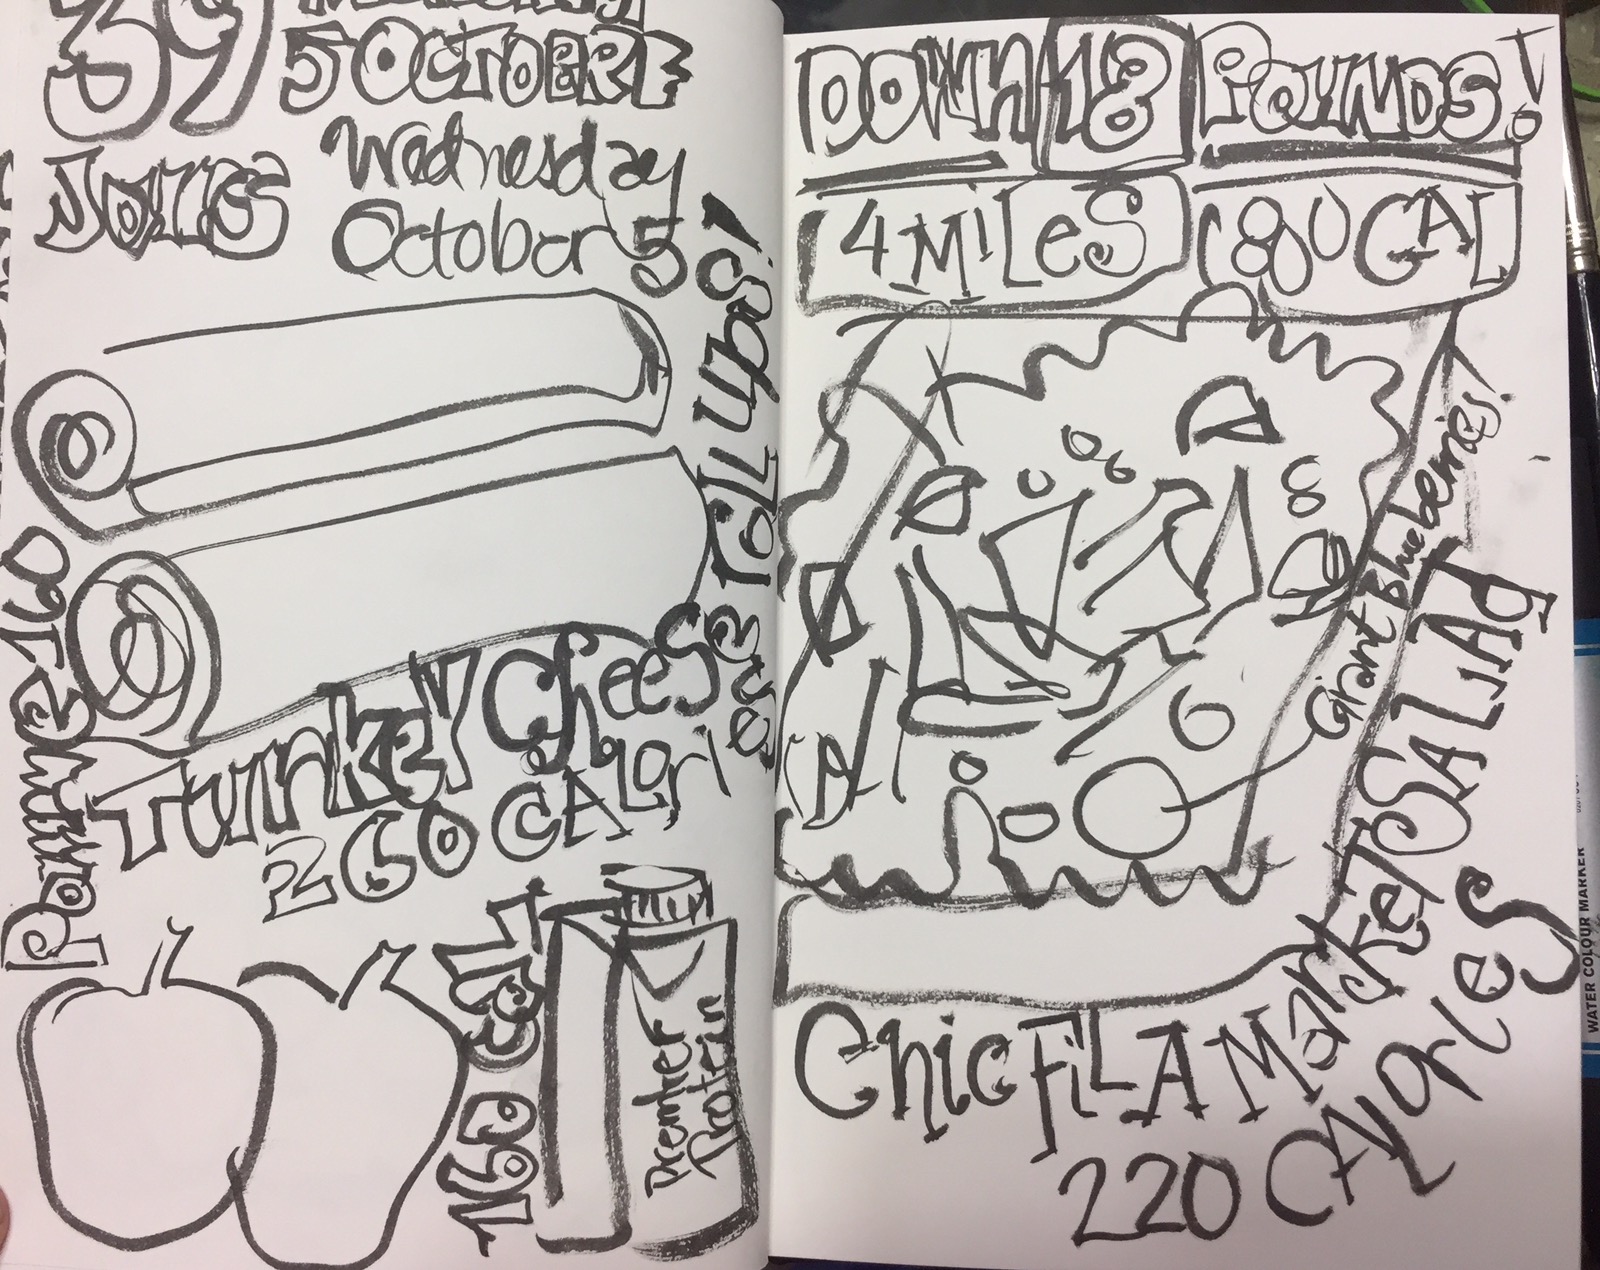 39
5 OCTOBRE
JOURS
Wednesday
October 5
Turkey Cheese roll ups!
260 CALories
Pommel 60
160 CAL
Premier
Protein
DOWN 18 POUNDS!
4 MiLeS
800 CAL
Giant Blueberries!
Chic FiLA MarkeT SALLAd
220 CALORIeS
WATER COLOUR MARKER